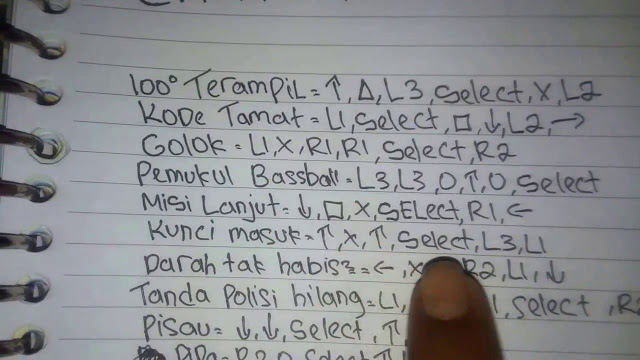 100° Terampil = ↑, Δ, L3, Select, X, L2
Kode Tamat = L1, Select, □, ↓, L2, →
Golok = L1, X, R1, R1, Select, R2
Pemukul Bassball = L3, L3, O, ↑, O, Select
Misi Lanjut = ↓, □, X, SELect, R1, ←
Kunci masuk = ↑, X, ↑, Select, L3, L1
Darah tak habis2 = ←, X R2, L1, ↓
Tanda Polisi hilang = L1, , Select, R2
Pisau = ↓, ↓, Select, ↑